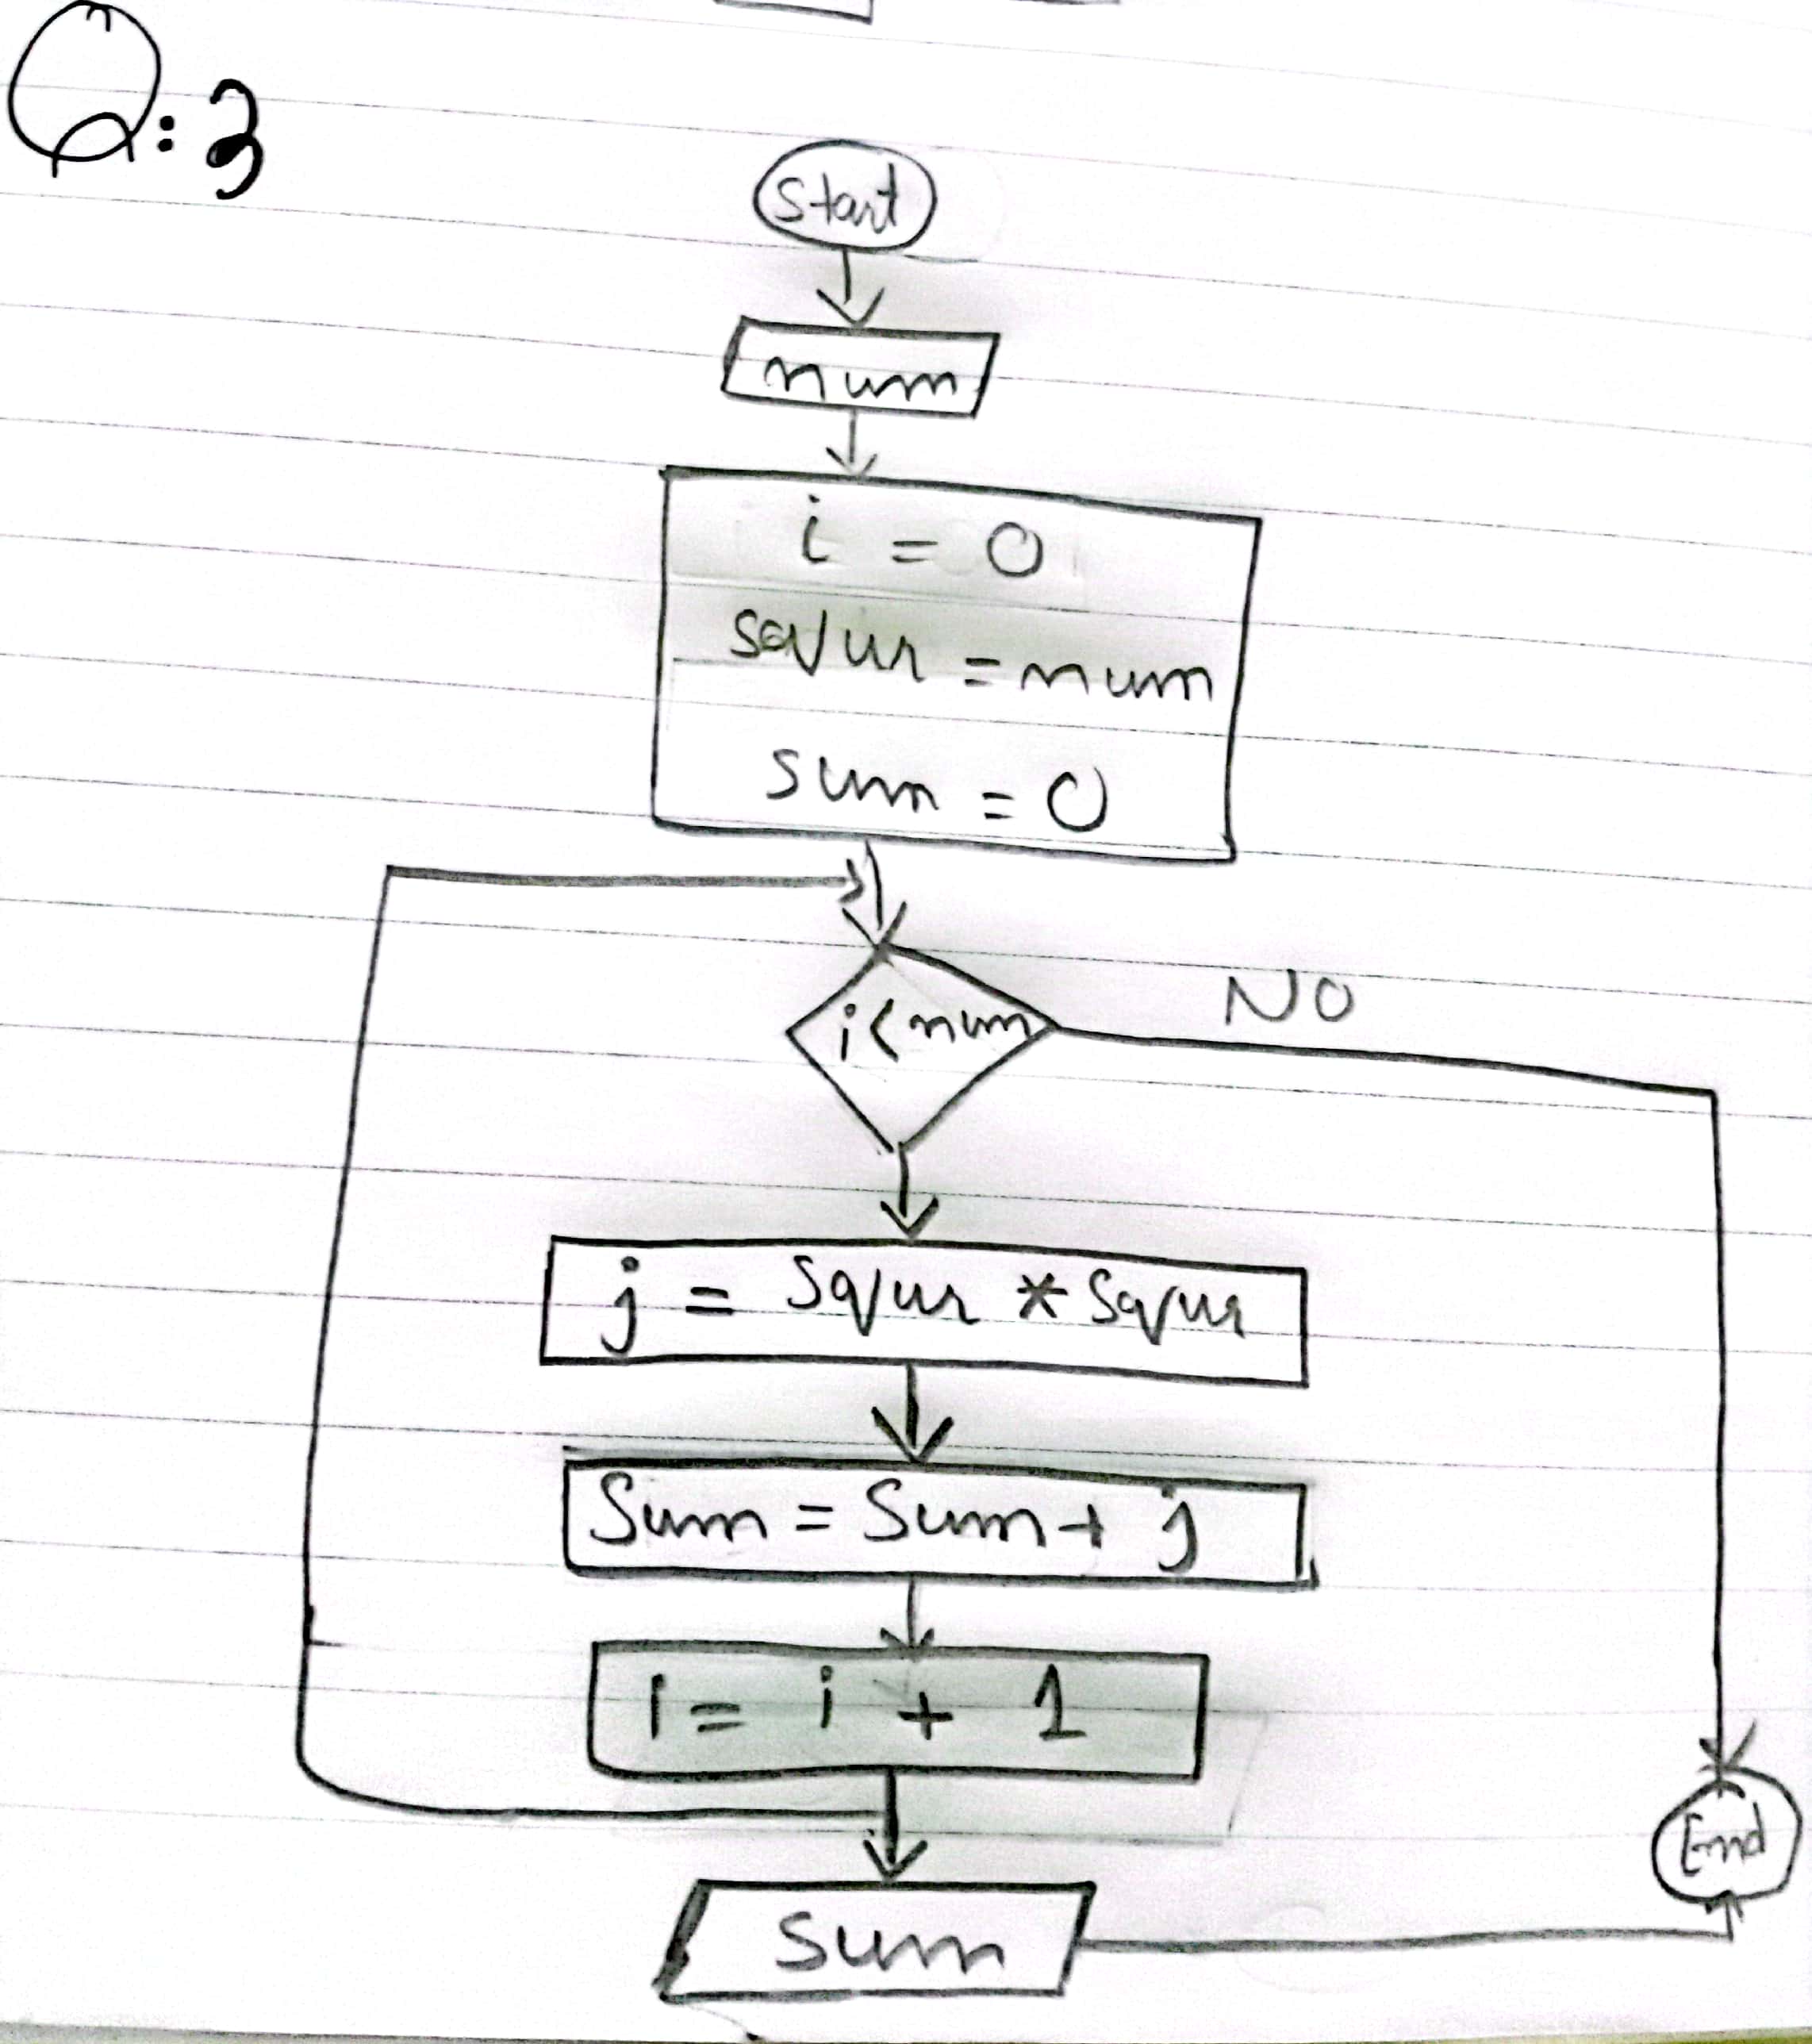 Q:3
Start
num
i = 0
squr = num
sum = 0
i<num
NO
j = Squr * Squr
Sum = Sum + j
i = i + 1
End
Sum